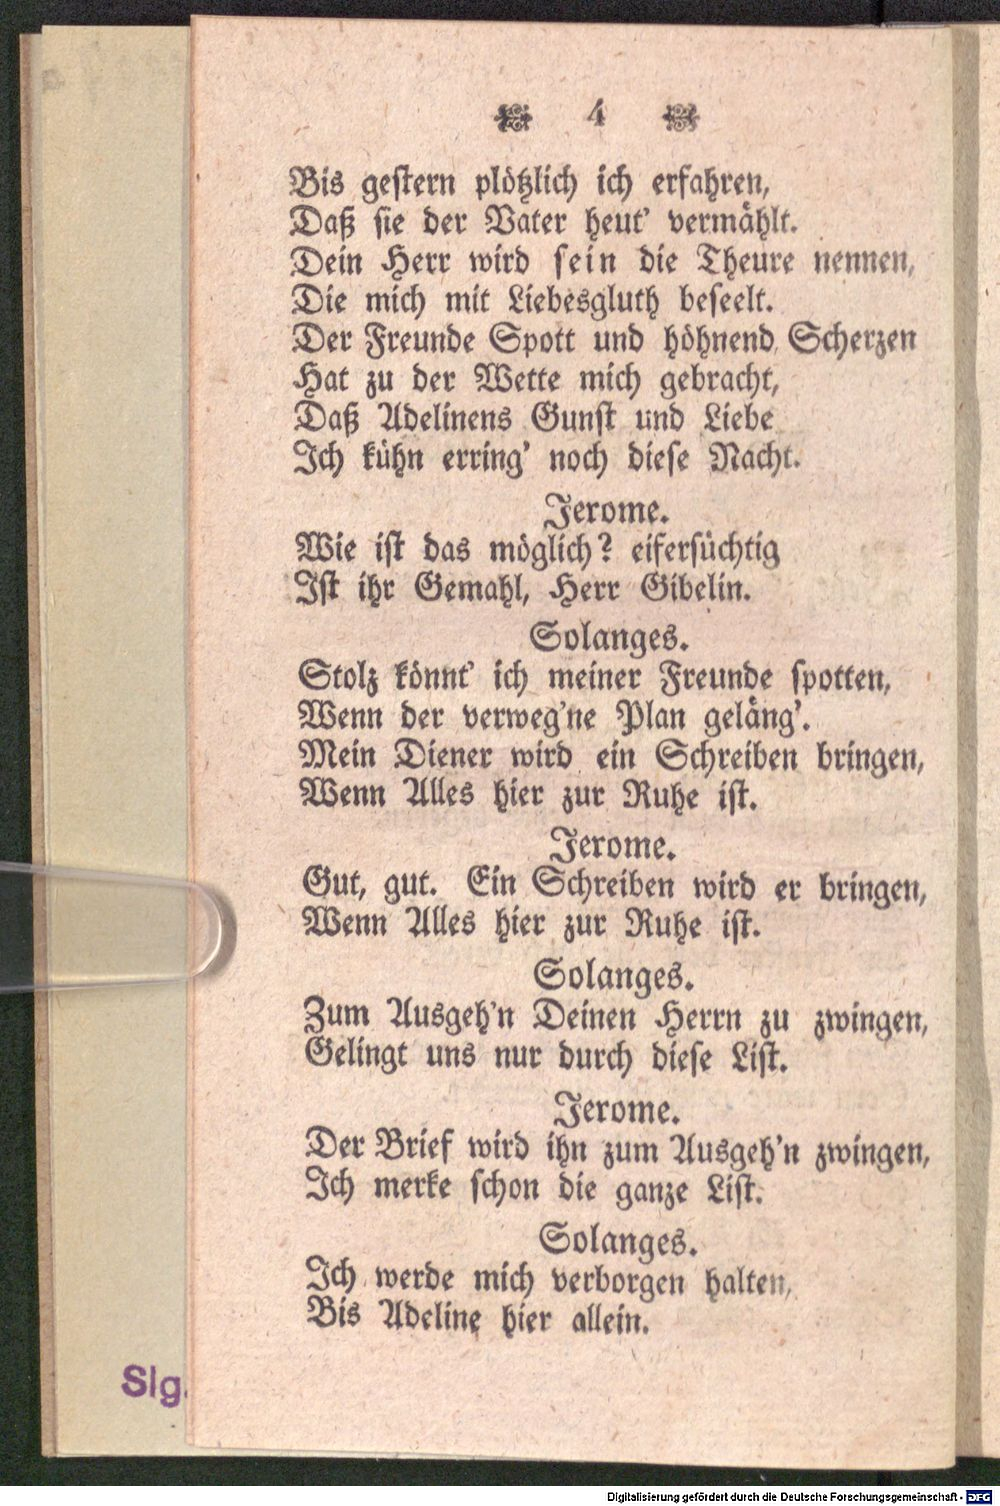 4
Bis gestern plötzlich ich erfahren,
Daß sie der Vater heut' vermählt.
Dein Herr wird sein die Theure nennen,
Die mich mit Liebesgluth beseelt.
Der Freunde Spott und höhnend Scherzen
Hat zu der Wette mich gebracht,
Daß Adelinens Gunst und Liebe
Ich kühn erring' noch diese Nacht.
Jerome.
Wie ist das möglich? eifersüchtig
Ist ihr Gemahl, Herr Gibelin.
Solanges.
Stolz könnt' ich meiner Freunde spotten,
Wenn der verweg'ne Plan geläng'.
Mein Diener wird ein Schreiben bringen,
Wenn Alles hier zur Ruhe ist.
Jerome.
Gut, gut. Ein Schreiben wird er bringen,
Wenn Alles hier zur Ruhe ist.
Solanges.
Zum Ausgeh'n Deinen Herrn zu zwingen,
Gelingt uns nur durch diese List.
Jerome.
Der Brief wird ihn zum Ausgeh'n zwingen,
Ich merke schon die ganze List.
Solanges.
Ich werde mich verborgen halten,
Bis Adeline hier allein.
Slg.
Digitalisierung gefördert durch die Deutsche Forschungsgemeinschaft - DFG